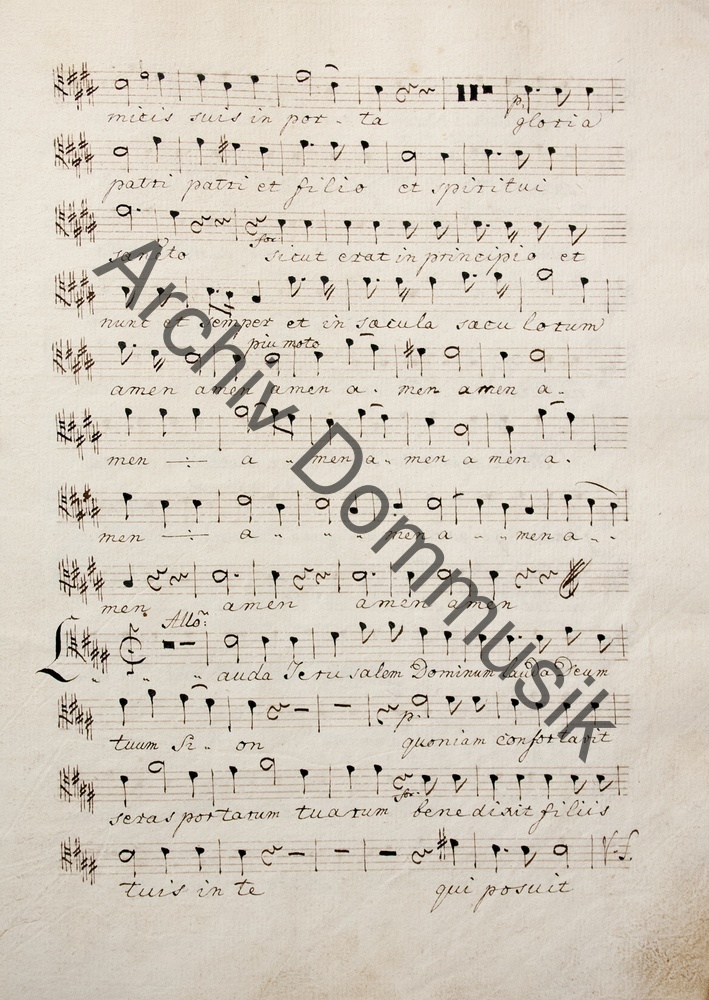 micis suis in por - ta gloria
p.
patri patri et filio et spiritui
sancto sicut erat in principio et
for
nunc et semper et in sæcula sæcu lorum
piu moto
amen amen amen a. men amen a..
men a .. men a.. men a men a.
men a .. .. .. men a .. men a ..
men amen amen amen
Allo:
Lauda Jeru salem Dominum lauda Deum
tuum Si .. on quoniam confortavit
p.
seras portarum tuarum benedixit filiis
for.
tuis in te qui posuit
V.S.
Archiv Dommusik